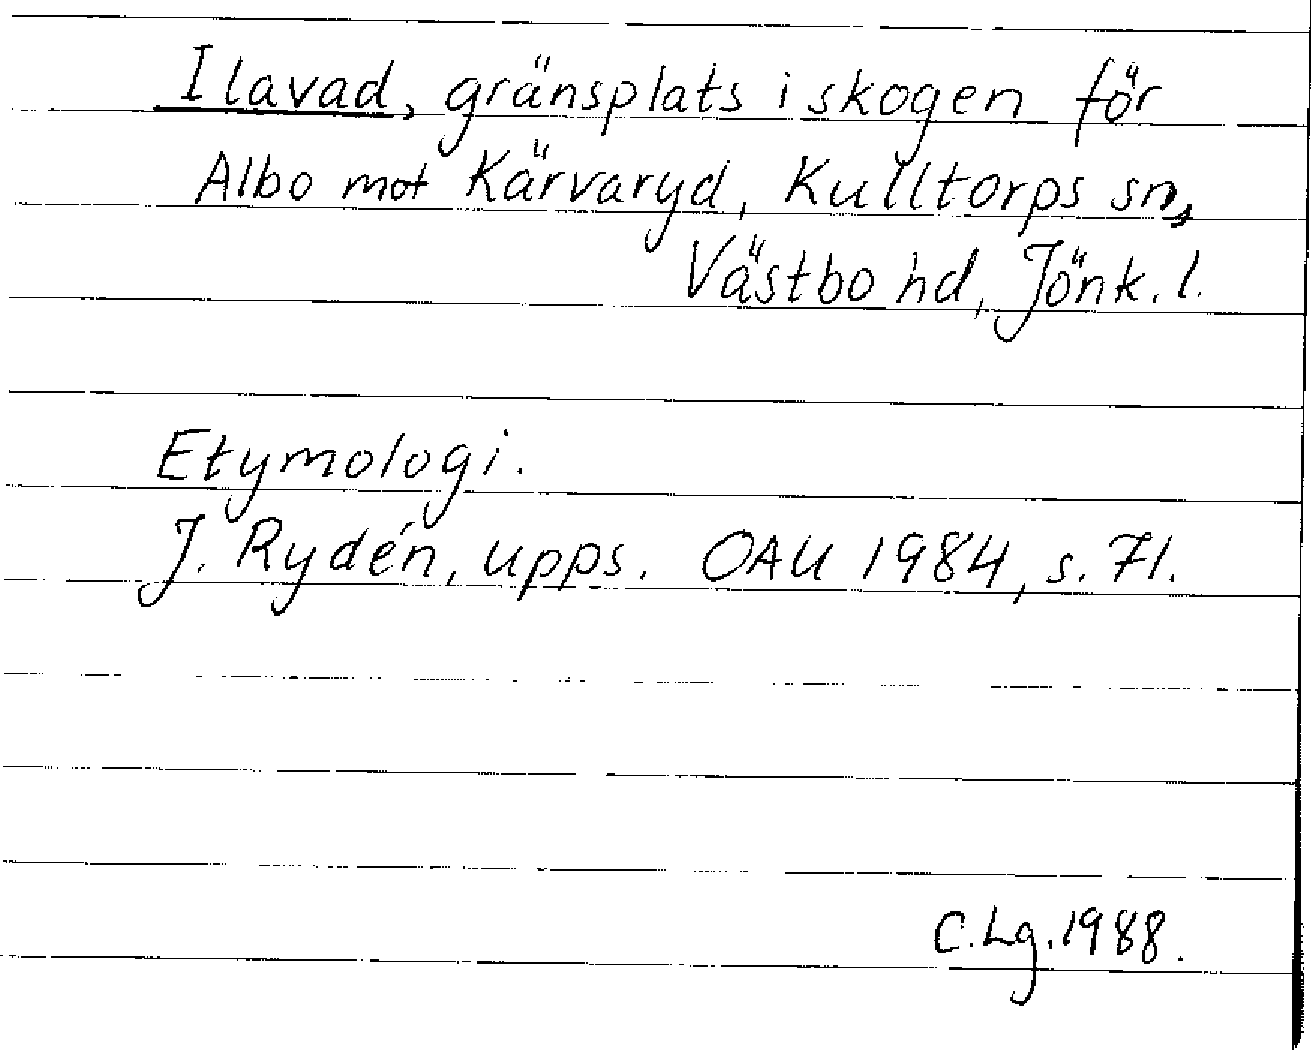 Ilavad, gränsplats i skogen för
Albo mot Kärvaryd, Kulltorps sn,
Västbo hd, Jönk. l.
Etymologi.
J. Rydén, upps. OAU 1984, s. 71.
C.Lg.1988.